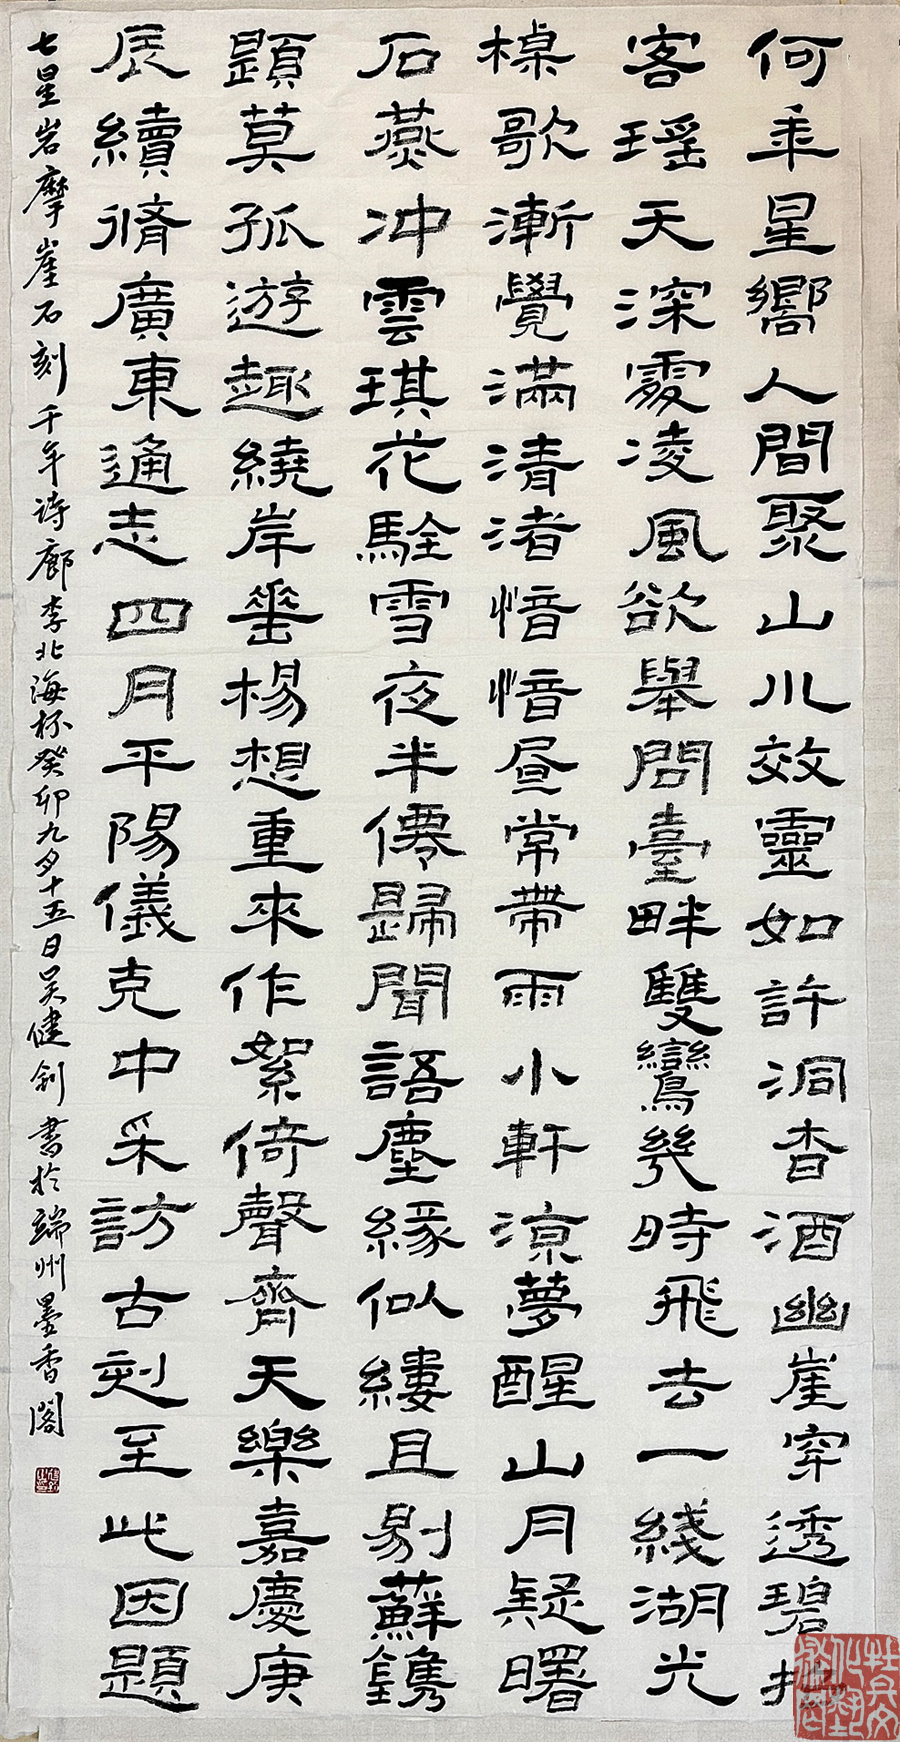 何年星嚮人間聚山川效靈如許洞杳酒幽崖穿透碧
客瑶天深處凌風欲舉問臺畔雙鸞幾時飛去一綫湖光
棹歌漸覺滿清渚愔愔昼常帶雨小軒涼夢醒山月疑曙
石燕冲雲琪花駐雪夜半僊歸聞語塵緣似縷且剔蘚鐫
題莫孤遊趣繞岸垂楊想重來作絮倚聲齊天樂嘉慶庚
辰續脩廣東通志四月平陽儀克中采訪古刻至此因題
七星岩摩崖石刻千年诗廊李北海杯癸卯九月十五日吴健釗書於端州墨香閣